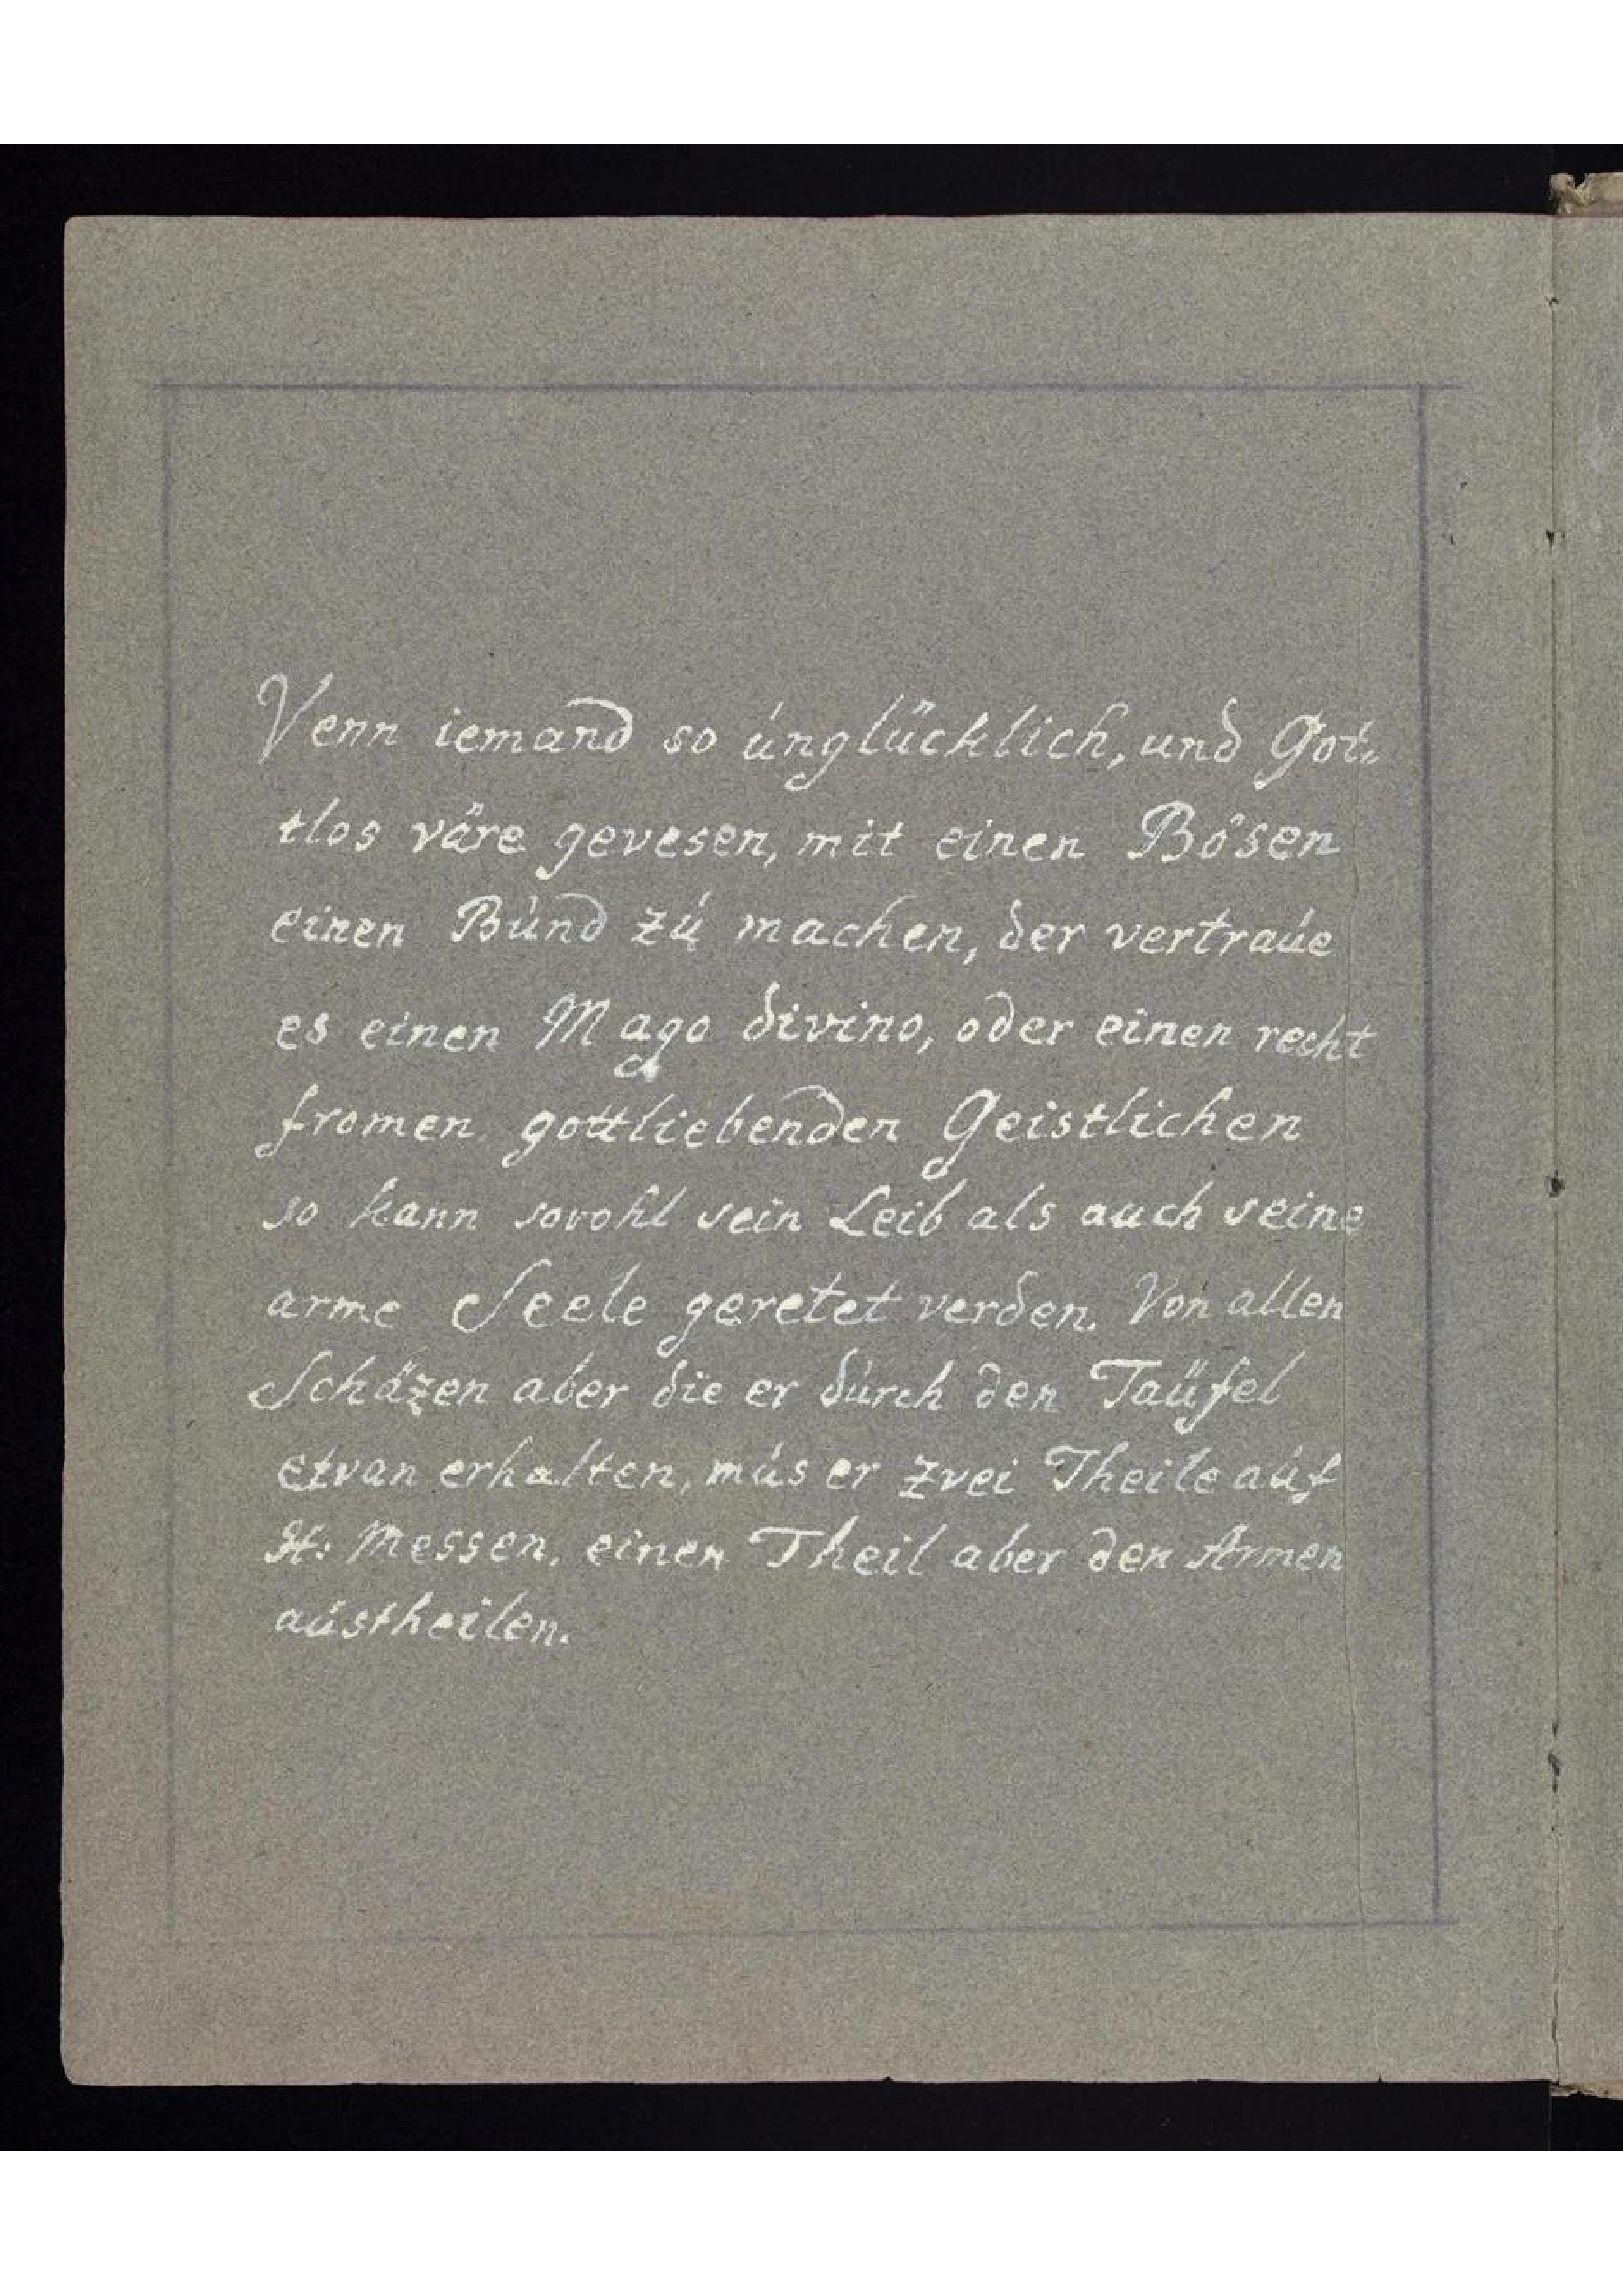 Venn iemand so únglücklich, und Got„
tlos väre gevesen, mit einen Bösen
einen Búnd zú machen, der vertraúe
es einen Mago divino, oder einen recht
fromen gottliebenden Geistlichen
so kann sovohl sein Leib als auch seine
arme Seele geretet verden. Von allen
Schäzen aber die er dúrch den Taüfel
etvan erhalten, mús er zvei Theile aúf
H: Messen, einen Theil aber den Armen
aústheilen.